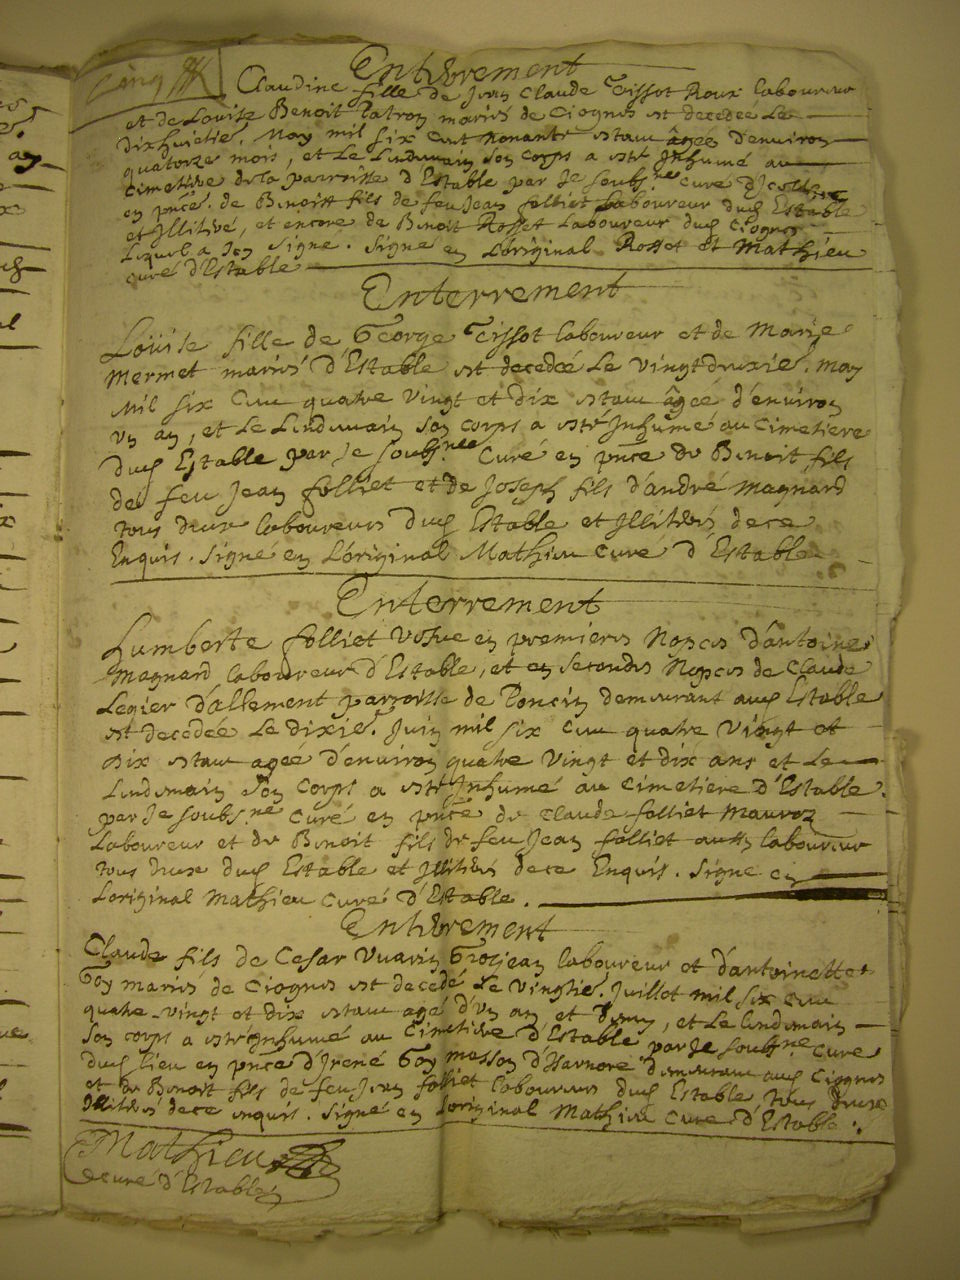 Cinq
Enterrement
Claudine fille de Jean Claude Tissot Roux laboureur
et de Louise Benoit Patron mariés de Ciognes est decedée Le
dixhuictie. May mil six cent nonante estant âgée d'environ
quatorze mois, et Le Lendemain son corps a esté Inhumé au
cimetiere de la parroisse d'Estable par Je soubs.né curé d'Jcelle
en pnce. de Benoist fils de feu Jean folliet laboureur dud Estable
et Jllitéré, et encore de Benoit Rosset Laboureur dud Ciognes
Lequel a Jcy signe. Signé en L'original Rosset et Mathieu
curé d'Estable
Enterrement
Loüise fille de George Tissot laboureur et de Marie
Mermet mariés d'Estable est decedée Le vingtdeuxie. may
Mil six cent quatre vingt et dix estant âgée d'environ
vn an, et Le Lendemain son corps a esté Jnhumé au Cimetiere
dud Estable par Je soubs.né Curé en pnce de Benoit fils
de feu Jean folliet et de Joseph fils d'andré Magnard
tous deux laboureurs dud Estable et Jllitérés de ce
Enquis. Signé en L'original Mathieu Curé d'Estable
Enterrement
Humberte folliet vefue en premieres Nopces d'antoine
Magnard laboureur d'Estable, et en secondes Nopces de Claude
Legier d'allement parroisse de Poncin demeurant aud Estable
est decedée Le dixie. Juin mil six cent quatre vingt et
dix estant agée d'environ quatre vingt et dix ans et Le
Lendemain son corps a esté Jnhumé au cimetiere d'Estable
par Je soubs.né curé en pnce de Claude folliet Mauroz
Laboureur et de Benoit fils de feu Jean folliet aussy laboureur
tous deux dud Estable et Jllitérés de ce Enquis. Signe en
Loriginal Mathieu Curé d'Estable.
Enterrement
Claude fils de Cesar Vuarin Grosjean laboureur et d'antoinette
Goy mariés de Ciognes est decedé Le vingtie. Juillet mil six cent
quatre vingt et dix estant agé d'vn an et demy, et Le lendemain
son corps a esté Jnhumé au Cimetiere d'Estable par Je soubs.né Curé
dud lieu en pnce d'Irené Goy masson demeurant aud Ciognes
et de Benoit fils de feu Jean folliet laboureur dud Estable tous deux
Jllitérés de ce enquis. Signé en Loriginal Mathieu Curé d'Estable.
Mathieu
curé d'Estable